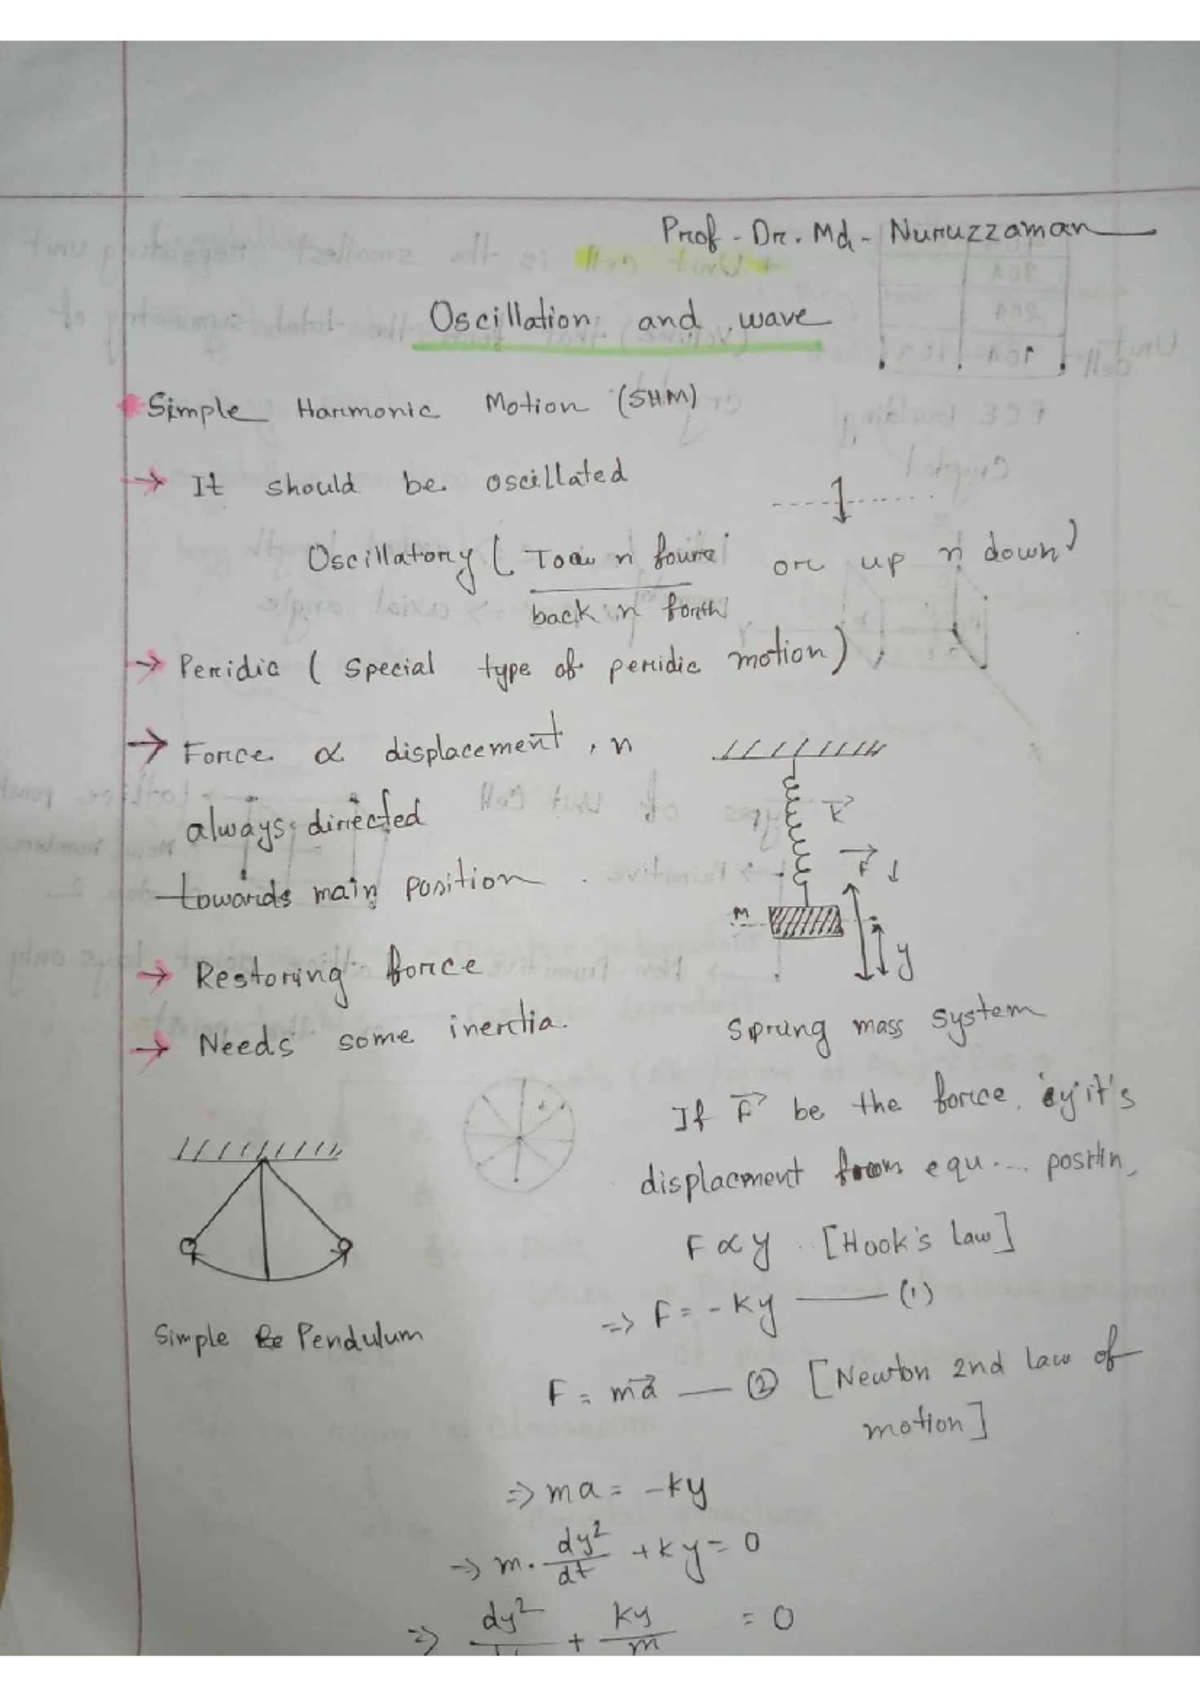 Prof. Dr. Md. Nuruzzaman
Oscillation and wave
* Simple Harmonic Motion (SHM)
→ It should be oscillated
Oscillatory ( To n or up n down)
back n forth
→ Peridic ( special type of peridic motion)
→ Force ∝ displacement, n
always directed
towards main position.
→ Restoring force
→ Needs some inertia.
M
y
Spring mass system
If F⃗ be the force, y it's
displacment from equ.... positin,
F ∝ y [Hook's law]
⇒ F = -ky —— (1)
Simple Pendulum
F = ma⃗ — (2) [Newton 2nd law of
motion]
⇒ ma = -ky
⇒ m. dy²/dt + ky = 0
⇒ dy² + ky/m = 0